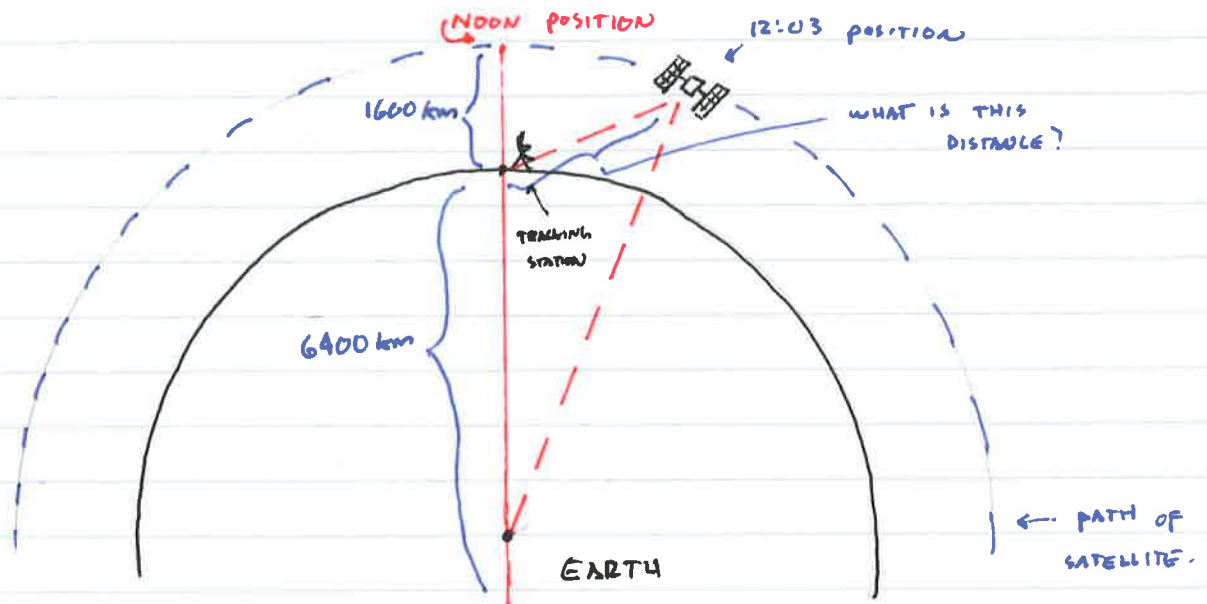 NOON POSITION
12:03 POSITION
1600 km
WHAT IS THIS
DISTANCE?
TRACKING
STATION
6400 km
EARTH
← PATH OF
SATELLITE.